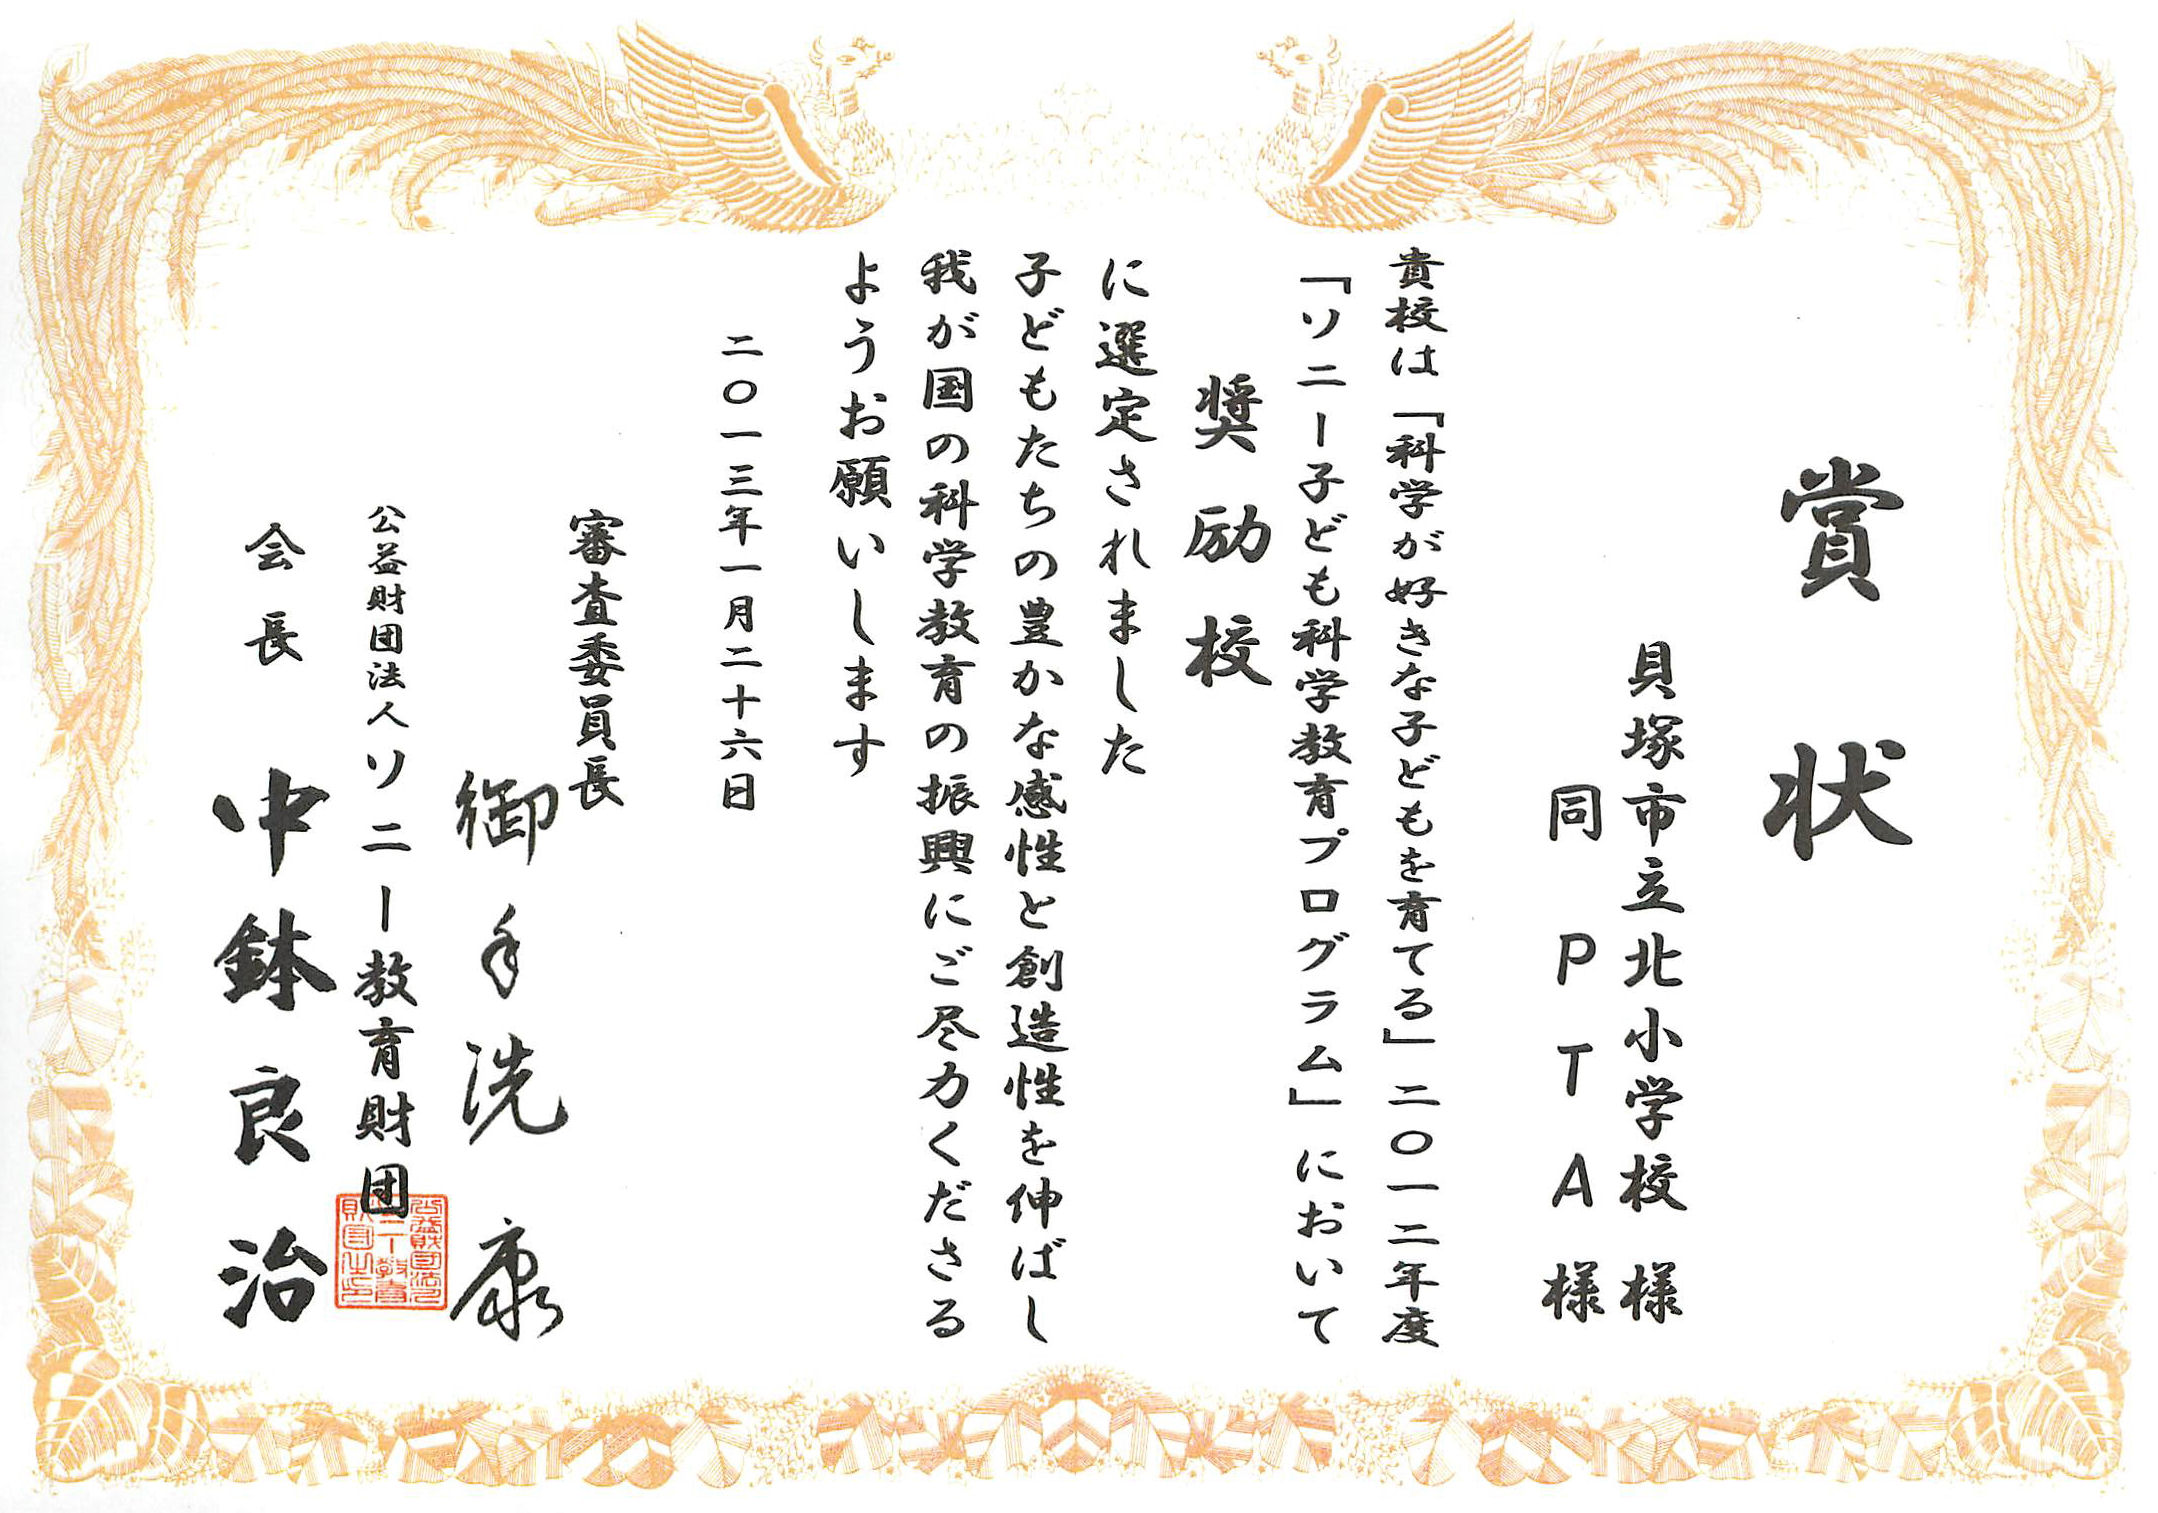 賞状
貝塚市立北小学校様
同PTA様
貴校は「科学が好きな子どもを育てる」二〇一二年度
「ソニー子ども科学教育プログラム」において
奨励校
に選定されました
子どもたちの豊かな感性と創造性を伸ばし
我が国の科学教育の振興にご尽力くださる
ようお願いします
二〇一三年一月二十六日
審査委員長
御手洗康
公益財団法人ソニー教育財団
会長 中鉢良治